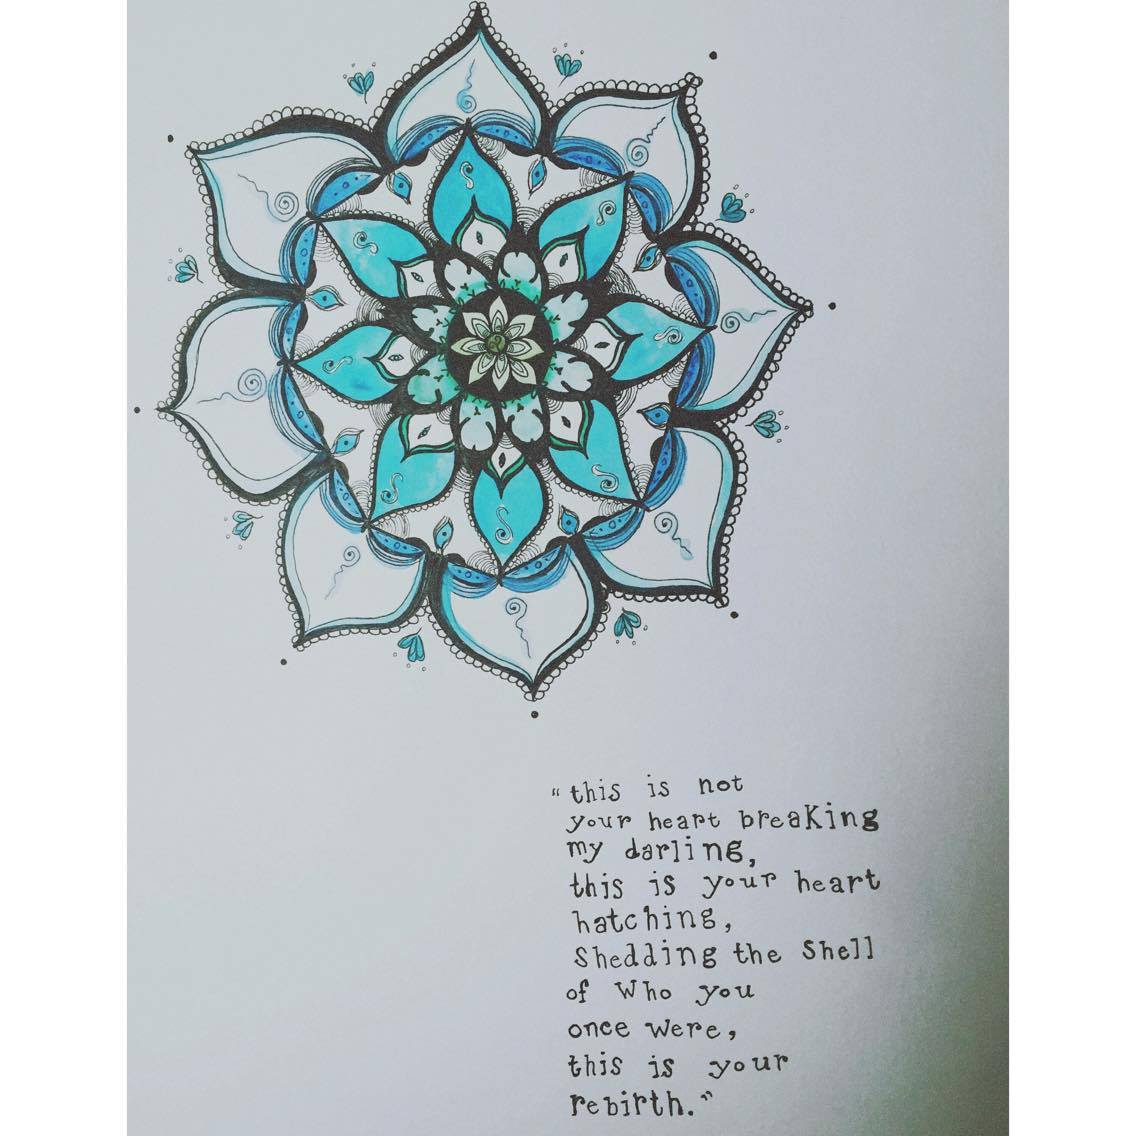 “this is not
your heart breaKing
my darling,
this is your heart
hatching,
Shedding the Shell
of Who you
once were,
this is your
rebirth.”